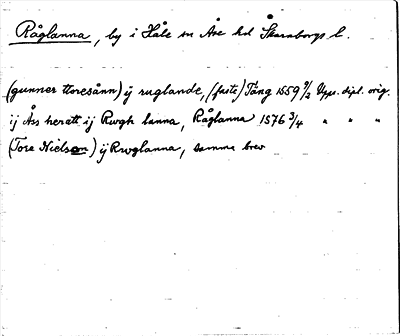 Råglanna, by i Håle sn Åse hd Skaraborgs l.
(gunner toresånn) ÿ ruglande, (faste) Täng 1559 9/2 Upps. dipl. orig.
ij Åss heratt ij Rwgh lanna, Råglanna 1576 3/4 " " "
(Tore Nielson) ÿ Rwglanna, samma brev